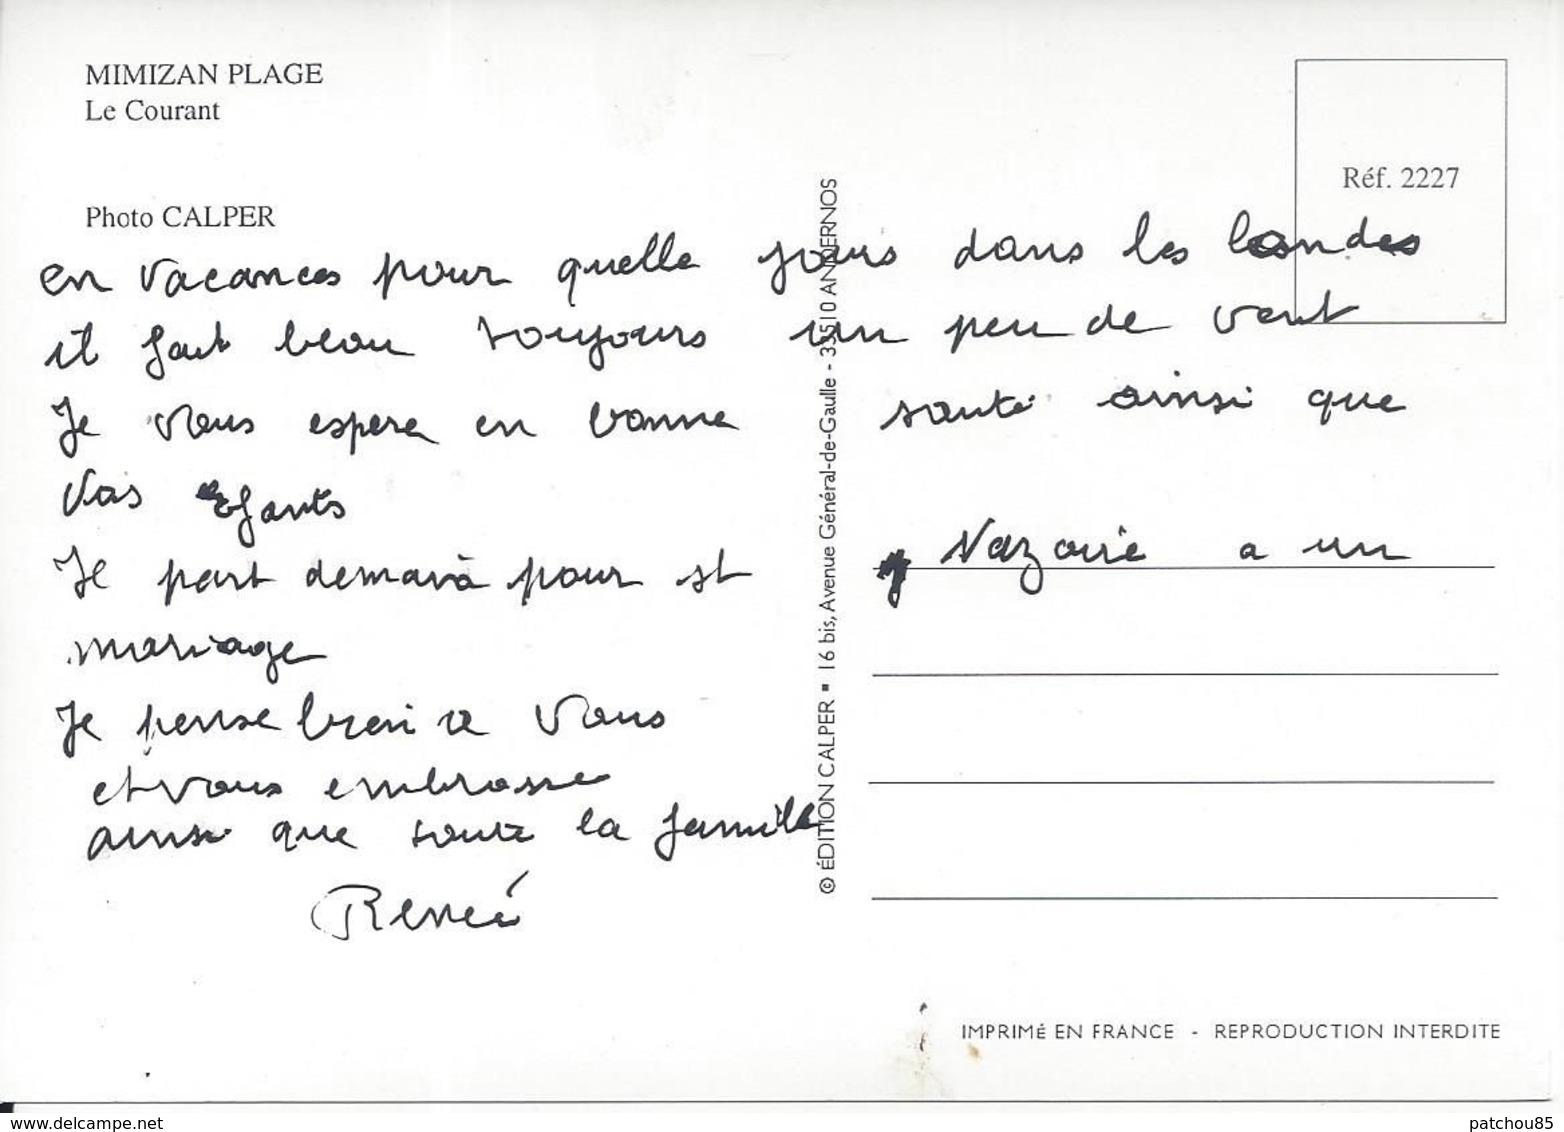 MIMIZAN PLAGE
Le Courant
Réf. 2227
Photo CALPER
en vacances pour quelle jours dans les landes
il fait beau toujours un peu de vent
Je vous espere en bonne santé ainsi que
vos Efants
Je part demain pour st Nazaire a un
mariage
Je pense bien a vous
et vous embrasse
ainsi que toute la famille
Renée
© ÉDITION CALPER ▪ 16 bis, Avenue Général-de-Gaulle - 33510 ANDERNOS
IMPRIMé EN FRANCE - REPRODUCTION INTERDITE
www.delcampe.net
patchou85